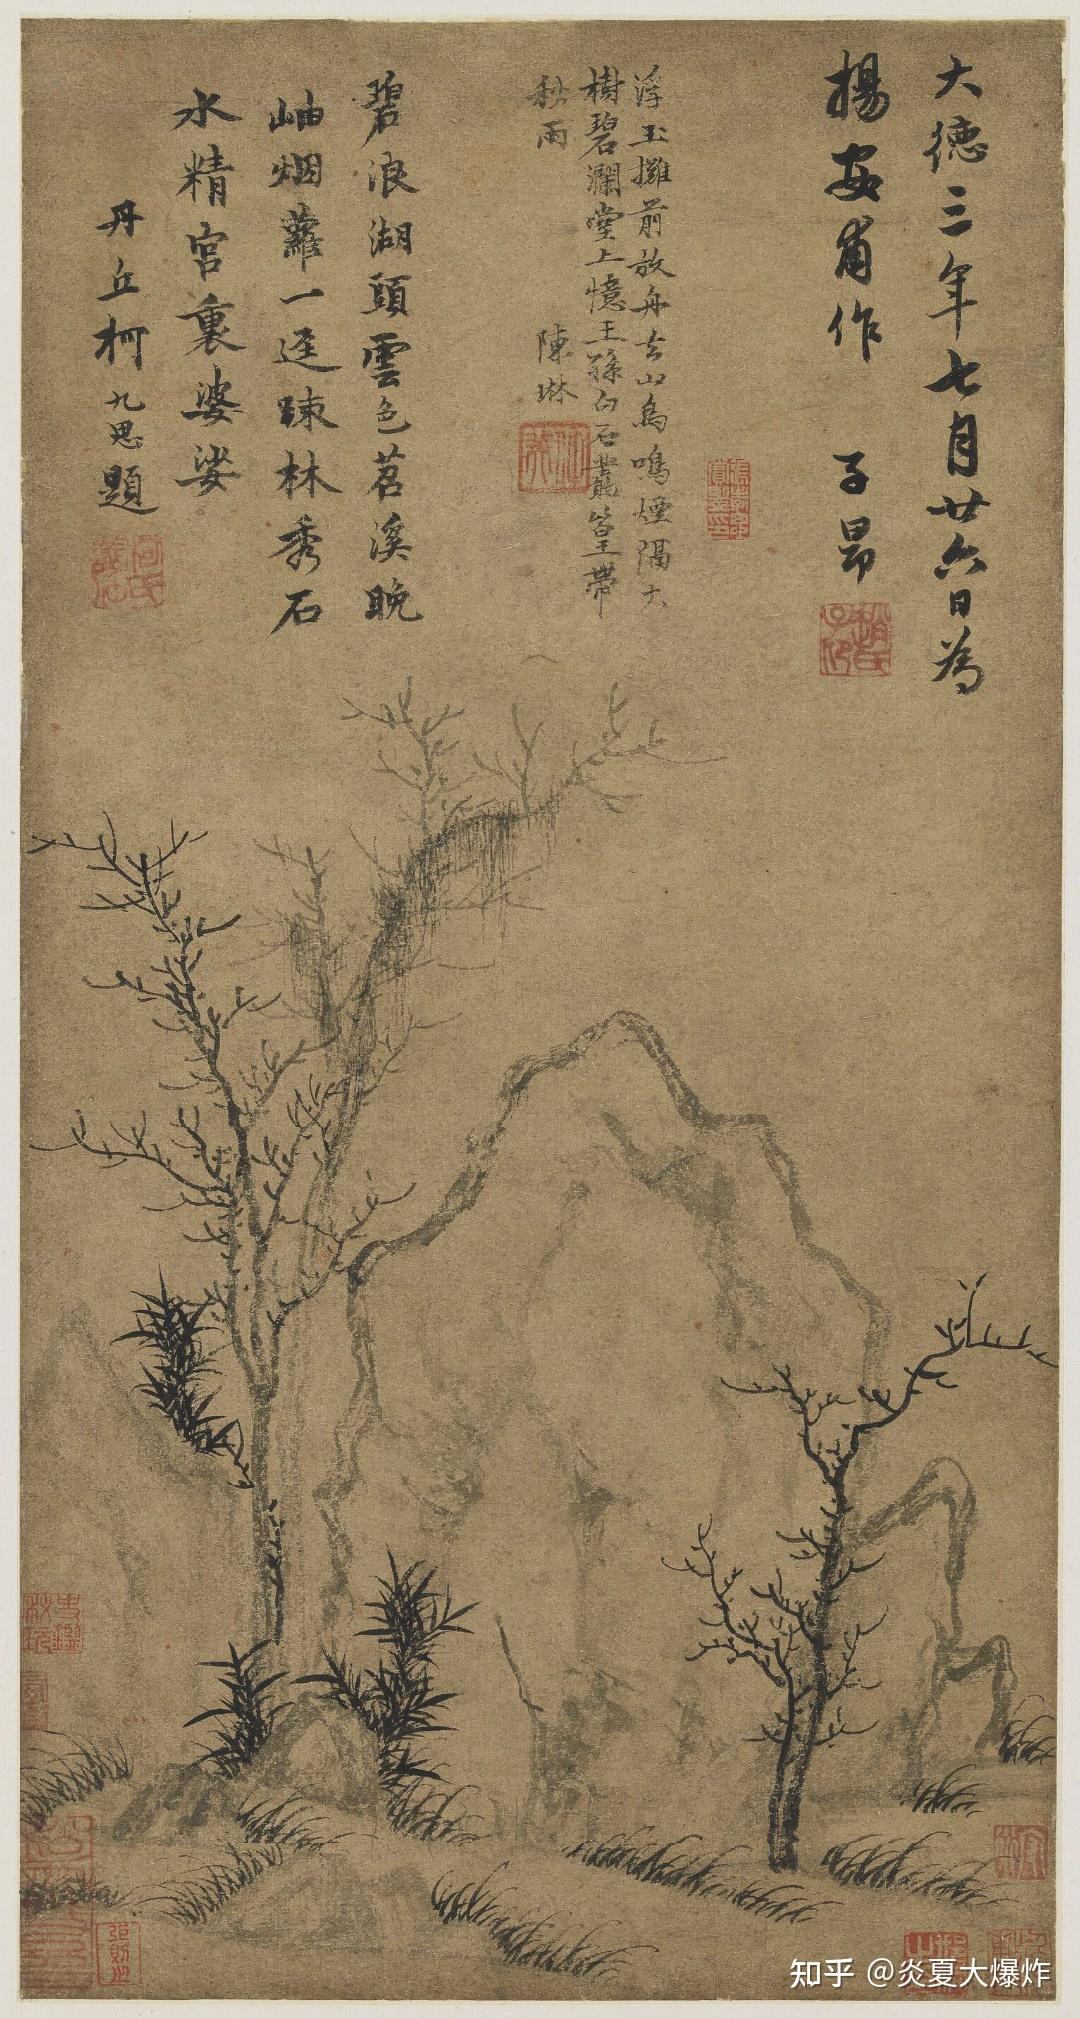 大德三年七月廿六日為
楊安甫作 子昂
趙氏子昂
浮玉攤前放舟去山鳥鳴煙隔大
樹碧瀾堂上憶王孫白石叢篁帶
秋雨 陳琳
碧浪湖頭雲色苕溪晚
岫烟蘿一逕踈林秀石
水精宮裏婆娑
丹丘柯九思題
知乎 @炎夏大爆炸